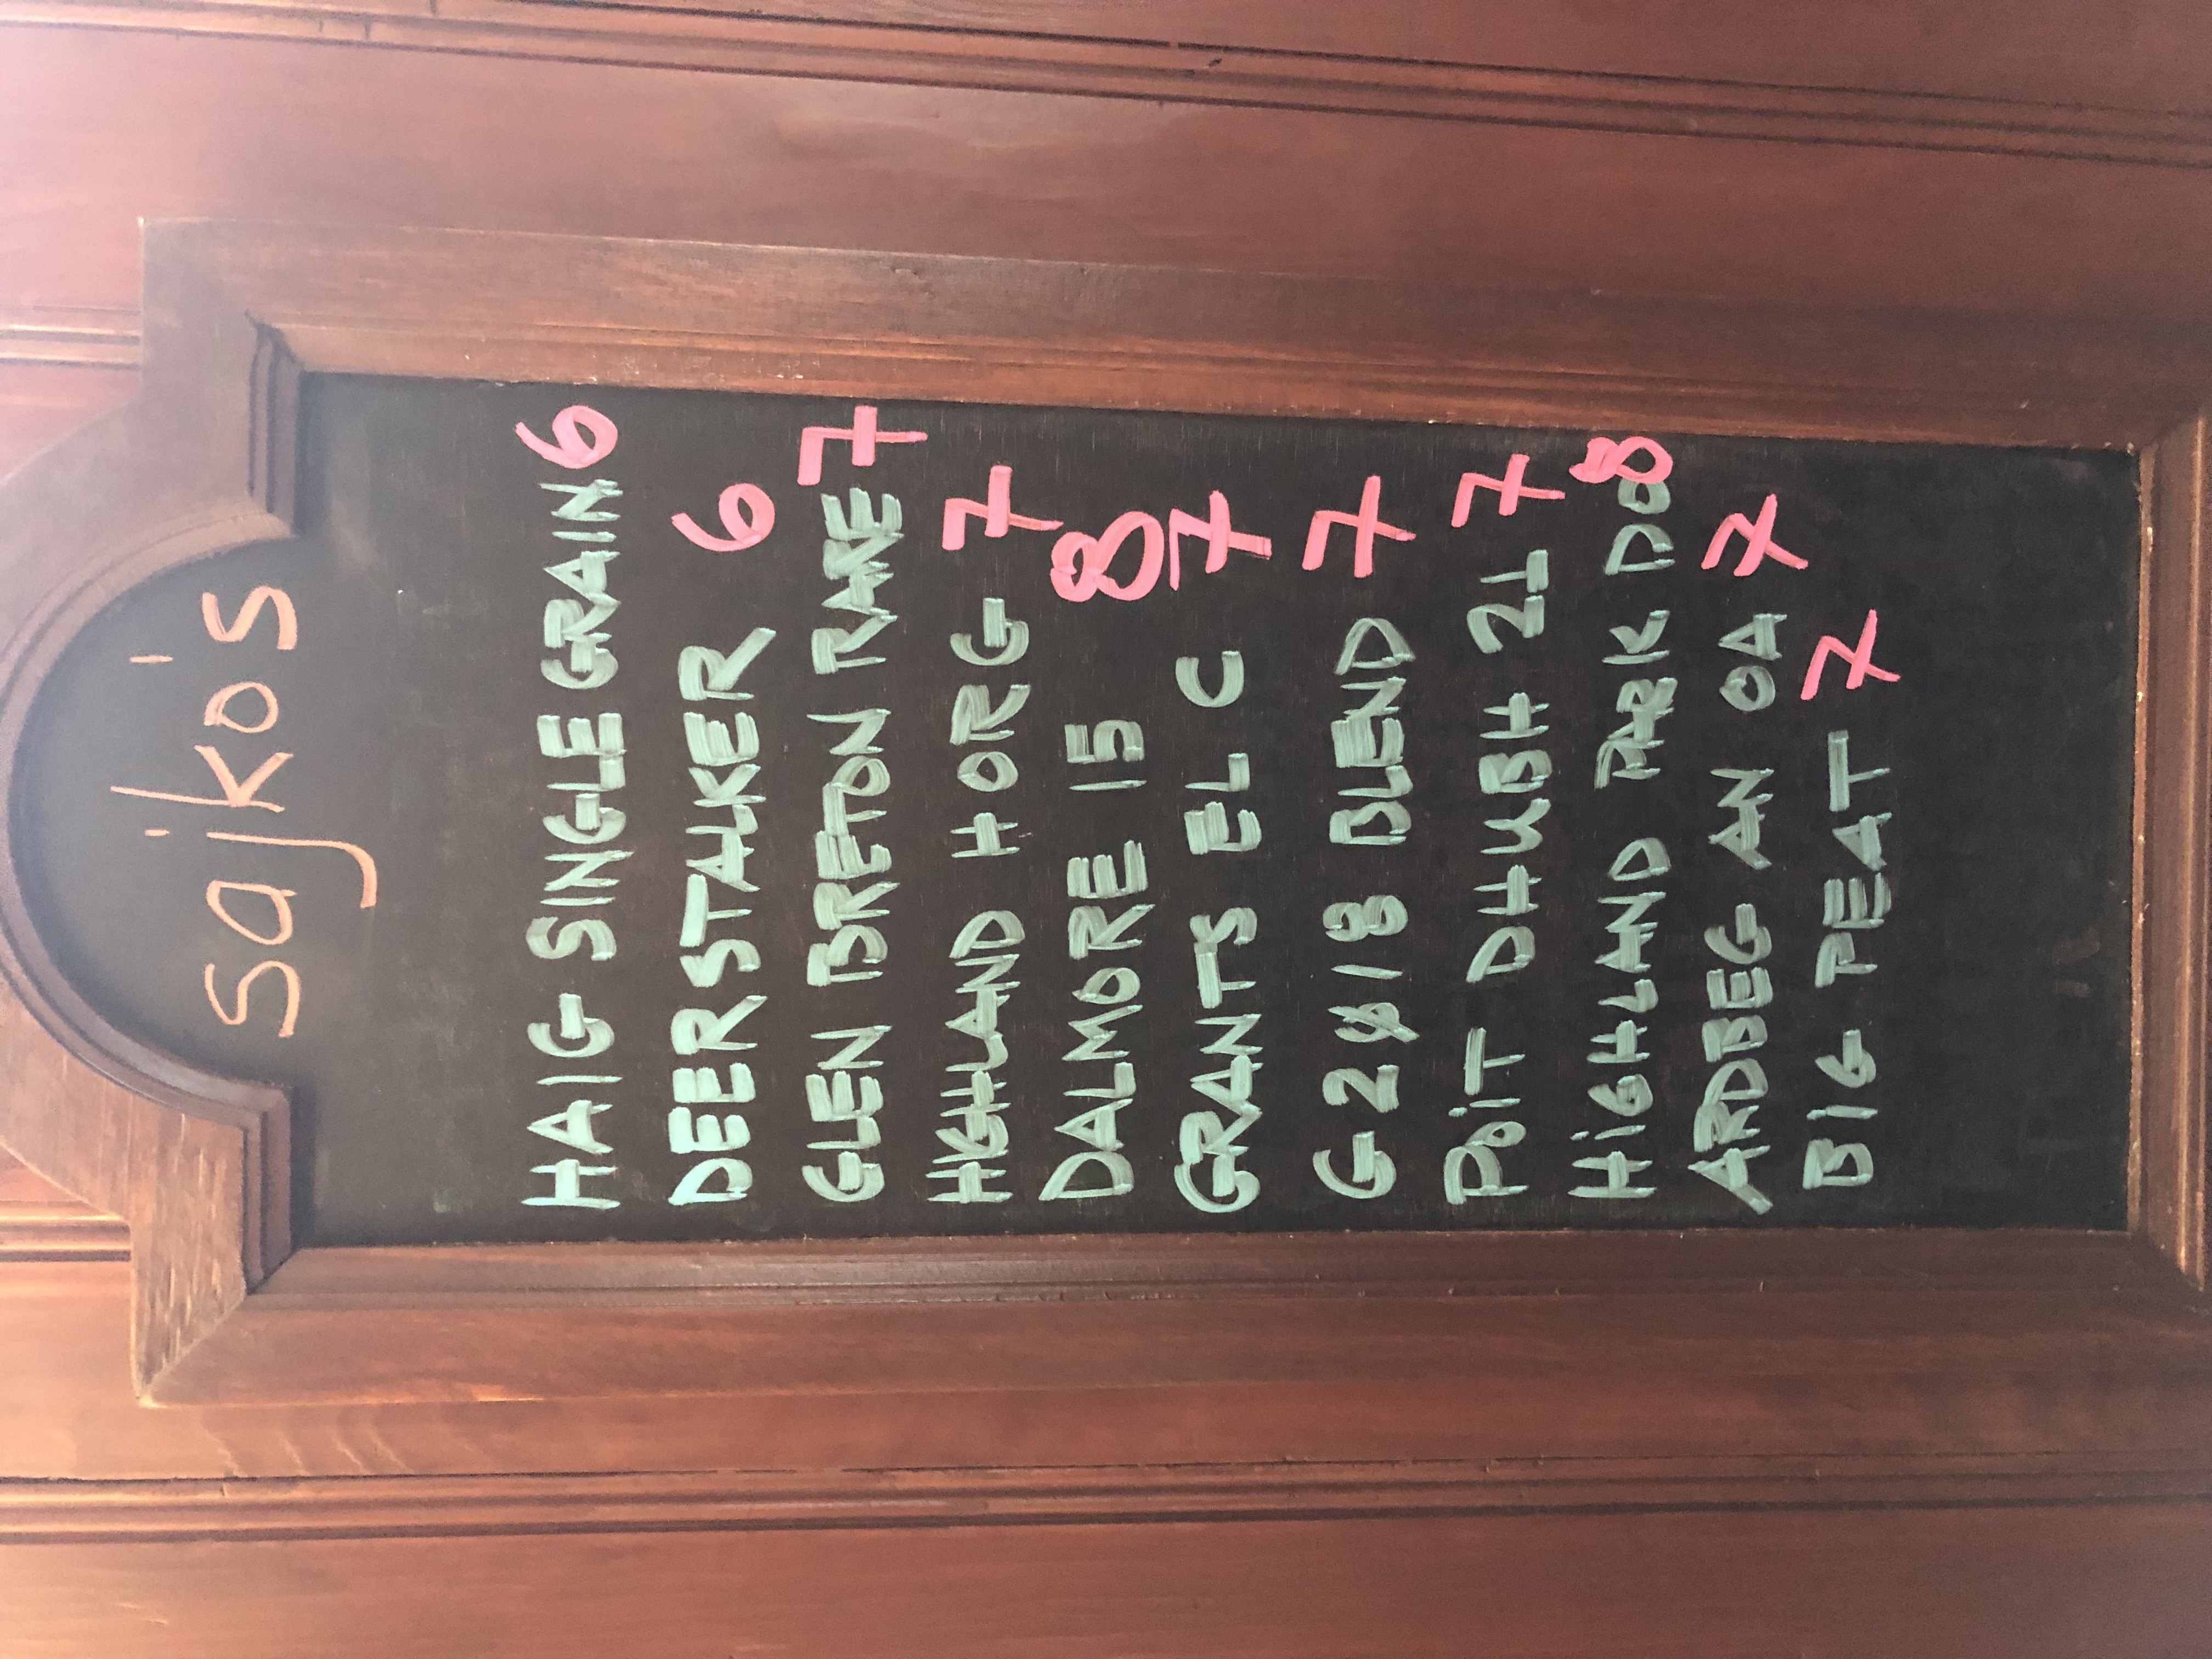 sajko's
HAIG SINGLE GRAIN 6
DEERSTALKER 6
GLEN BRETON RARE 7
HIGHLAND H ORG 7
DALMORE 15 8
GRANTS EL C 7
G 2018 BLEND 7
POiT DHUBH 21 7
HiGHLAND PARK DO 8
ARDBEG AN OA 7
BIG PEAT 7